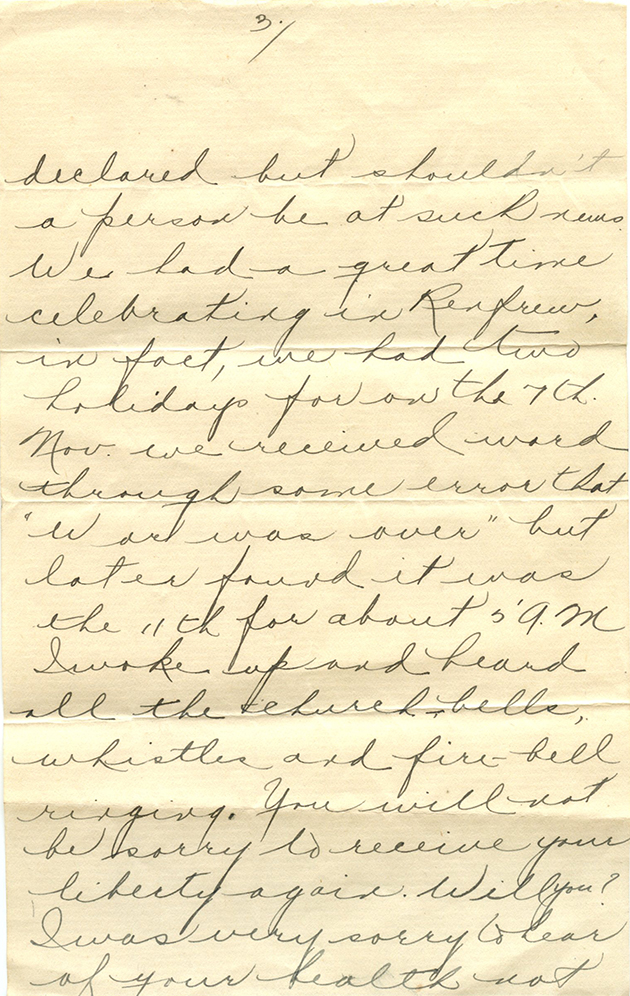 3./
declared but shouldn't
a person be at such news.
We had a great time
celebrating in Renfrew,
in fact, we had two
holidays for on the 7th.
Nov. we received word
through some error that
"War was over" but
later found it was
the 11th for about 5 A.M
I woke up and heard
all the church-bells,
whistles and fire-bell
ringing. You will not
be sorry to receive your
liberty again. Will you?
I was very sorry to hear
of your health not